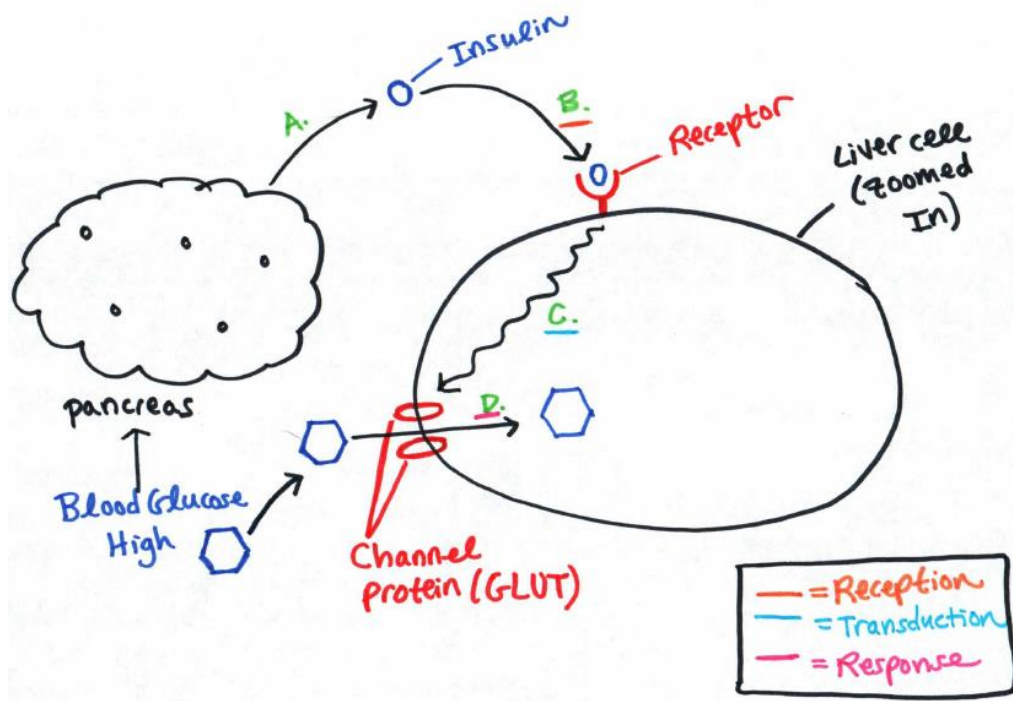 Insulin
A.
B.
Receptor
Liver cell
(zoomed
In)
C.
pancreas
D.
Blood Glucose
High
Channel
protein (GLUT)
= Reception
= Transduction
= Response